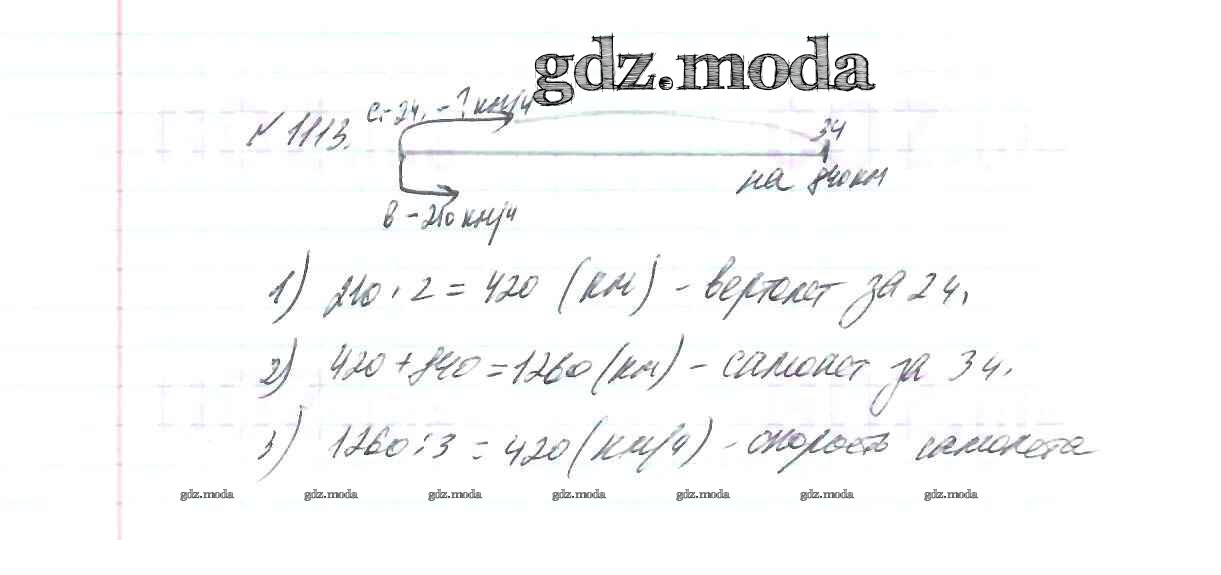 gdz.moda
С.-2ч. - ? км/ч
№ 1113.
3ч
на 840 км
В - 210 км/ч
1) 210 · 2 = 420 (км) - вертолет за 2 ч.
2) 420 + 840 = 1260 (км) - самолет за 3 ч.
3) 1260 : 3 = 420 (км/ч) - скорость самолета
gdz.moda gdz.moda gdz.moda gdz.moda gdz.moda gdz.moda gdz.moda